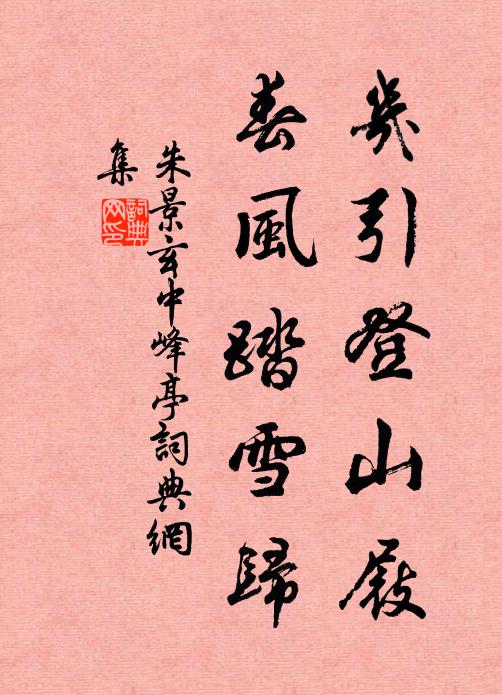 幾引登山屐
春風踏雪歸
朱景玄中峰亭詞典網
集
詞典
網印